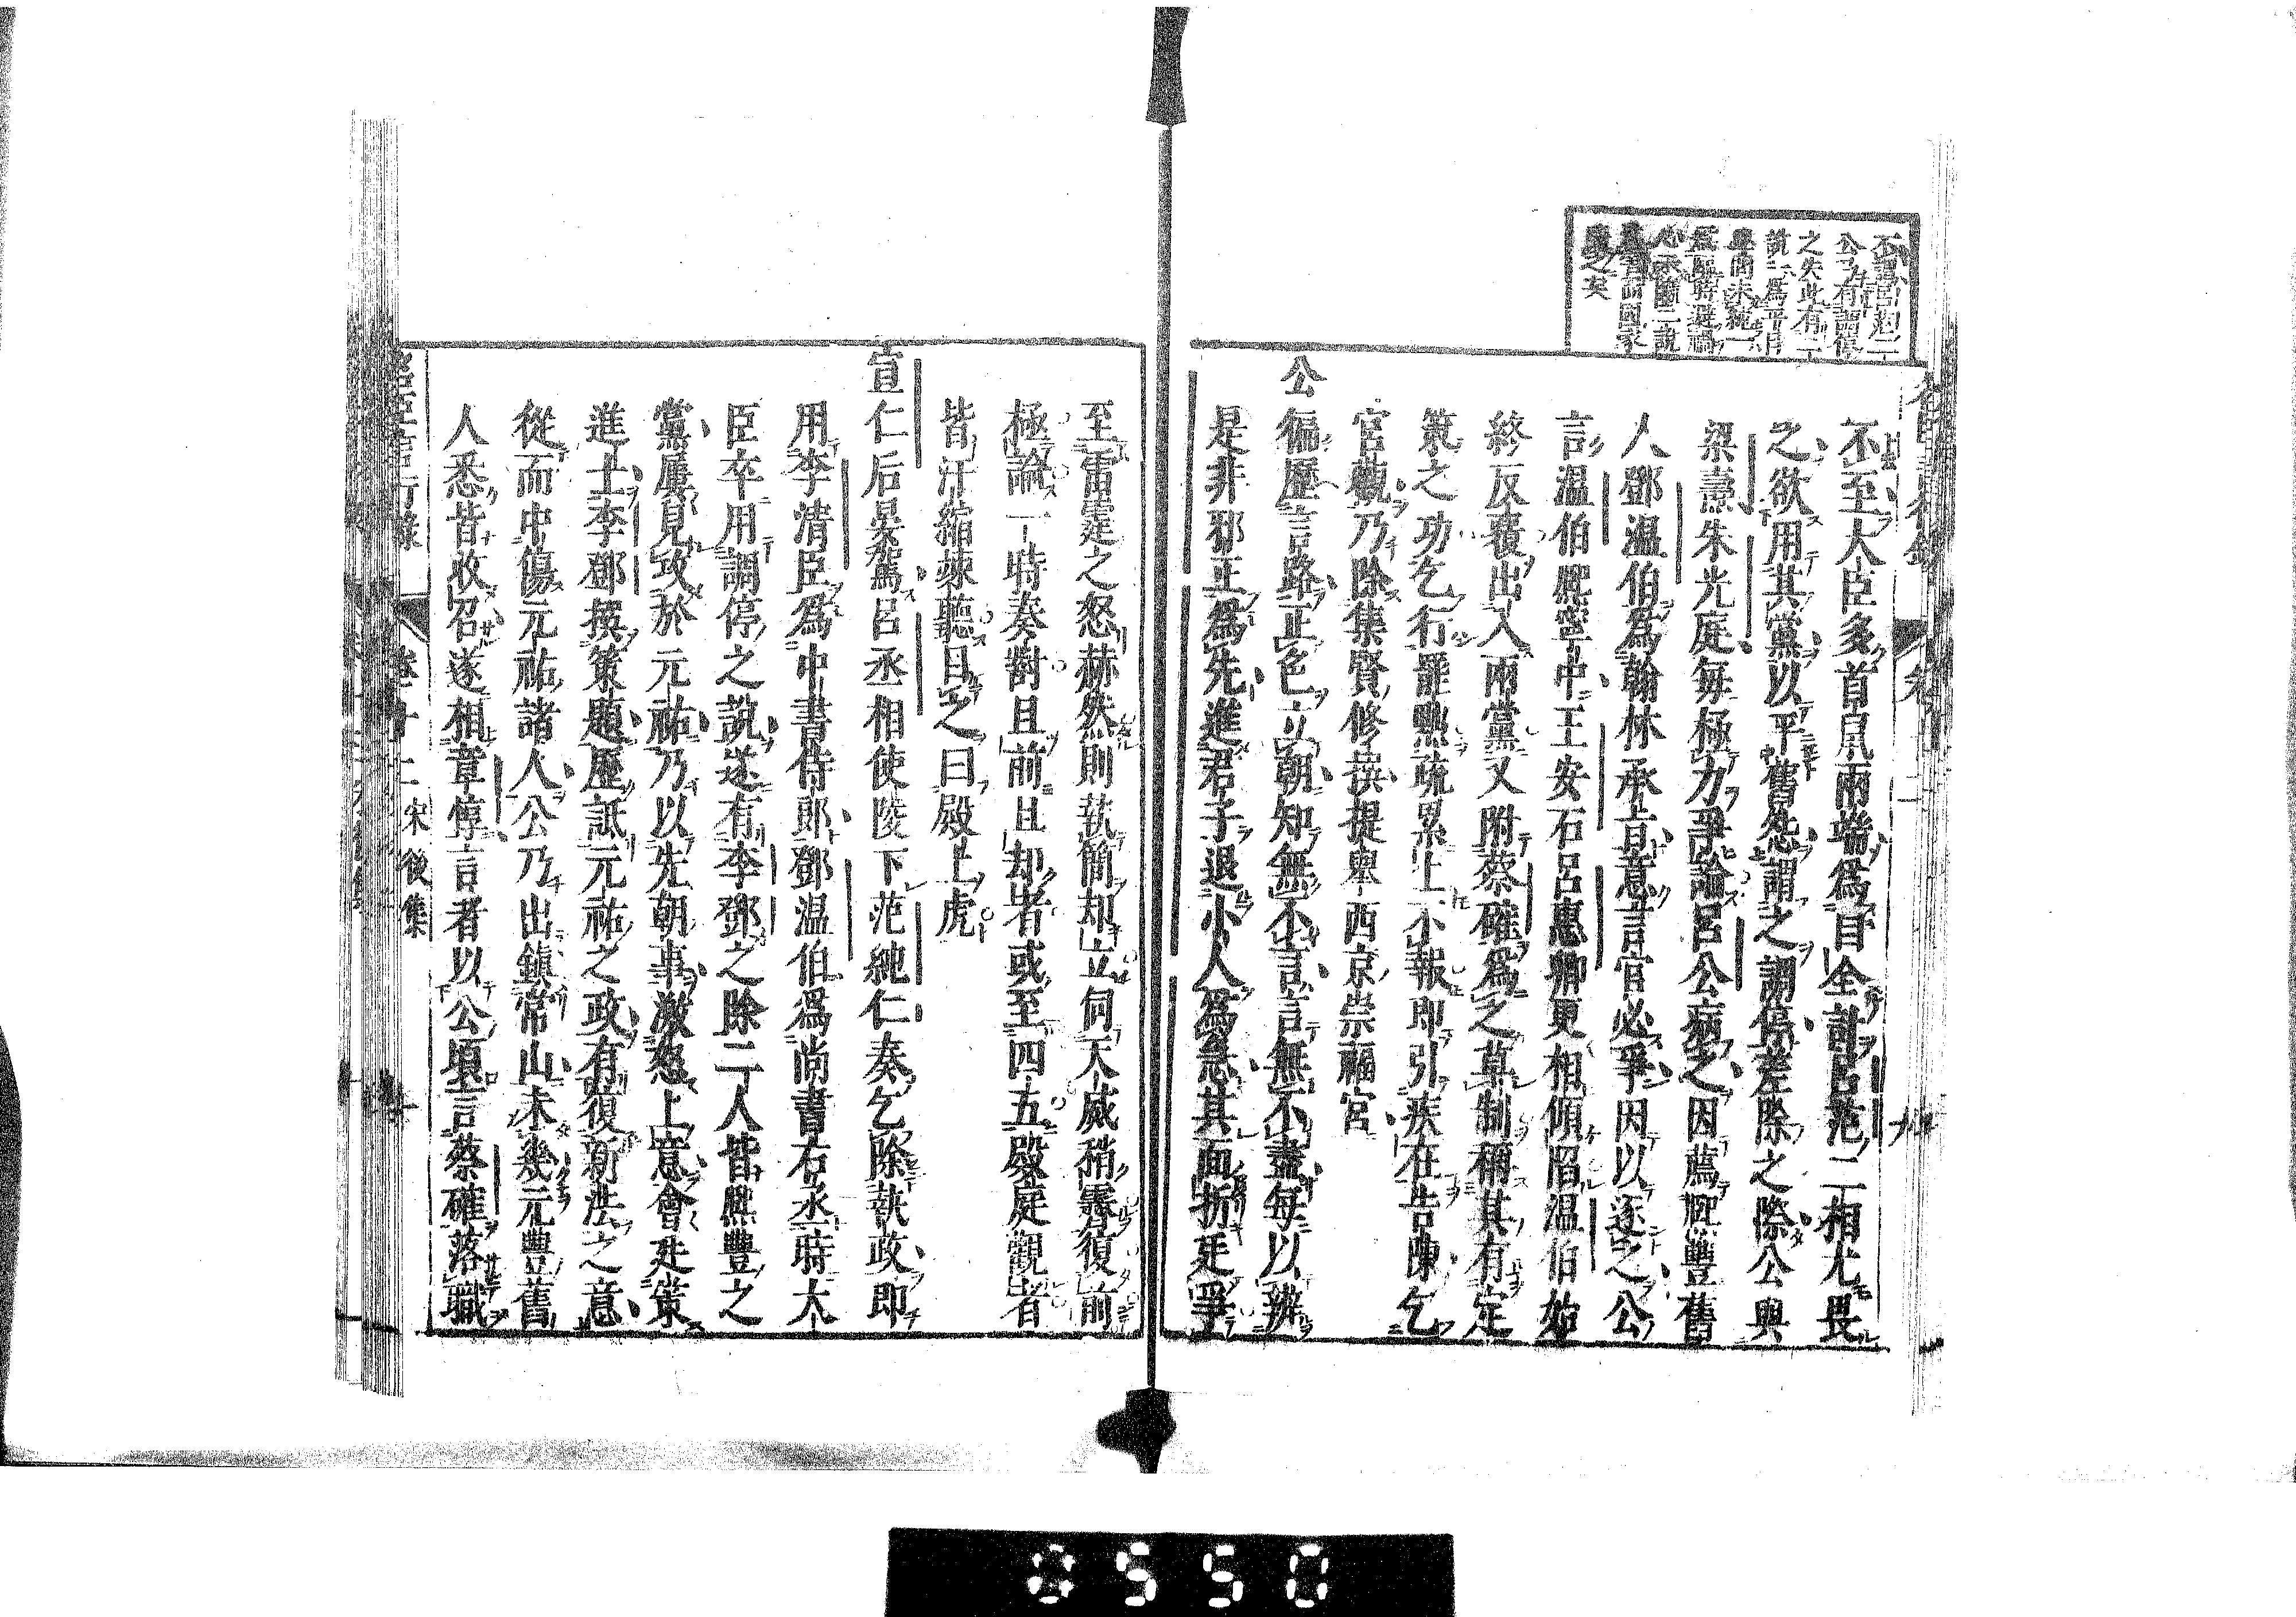 不至大臣多首鼠兩端爲自全計呂范二相尤畏
之欲用其黨以平舊怨謂之調停差除之際公與
梁燾朱光庭每極力爭論呂公病之因薦熙豐舊
人鄧温伯爲翰林承旨意言官必爭因以逐之公
言温伯熙寧中王安石呂惠卿更相傾陷温伯始
終反覆出入兩黨又附蔡確爲之草制稱其有定
策之功乞行罷黜疏累上不報即引疾在告陳乞
官觀乃除集賢修撰提舉西京崇福宮
公徧歷言路正色立朝知無不言言無不盡每以辨
是非邪正爲先進君子退小人爲急其面折廷爭
至雷霆之怒赫然則執簡却立伺天威稍霽復前
極論一時奏對且前且却者或至四五殿庭觀者
皆汗縮竦聽目之曰殿上虎
宣仁后晏駕呂丞相使陵下范純仁奏乞除執政即
用李清臣爲中書侍郎鄧温伯爲尚書右丞時大
臣卒用調停之說遂有李鄧之除二人皆熙豐之
黨屢見攻於元祐乃以先朝事激怒上意會廷策
進士李鄧撰策題歷詆元祐之政有復新法之意
從而中傷元祐諸人公乃出鎮常山未幾元豐舊
人悉皆收召遂相章惇言者以公頃言蔡確落職
卷十二 宋後集
0550